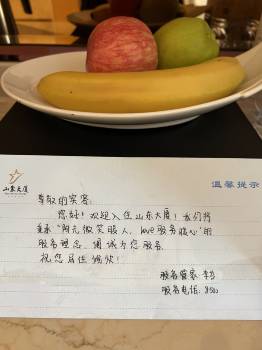 山东大厦
温馨提示
尊敬的宾客:
您好！欢迎入住山东大厦！我们将
秉承“阳光微笑暖人，love服务暖心”的
服务理念，真诚为您服务。
祝您居住愉快！
服务管家:
服务电话: